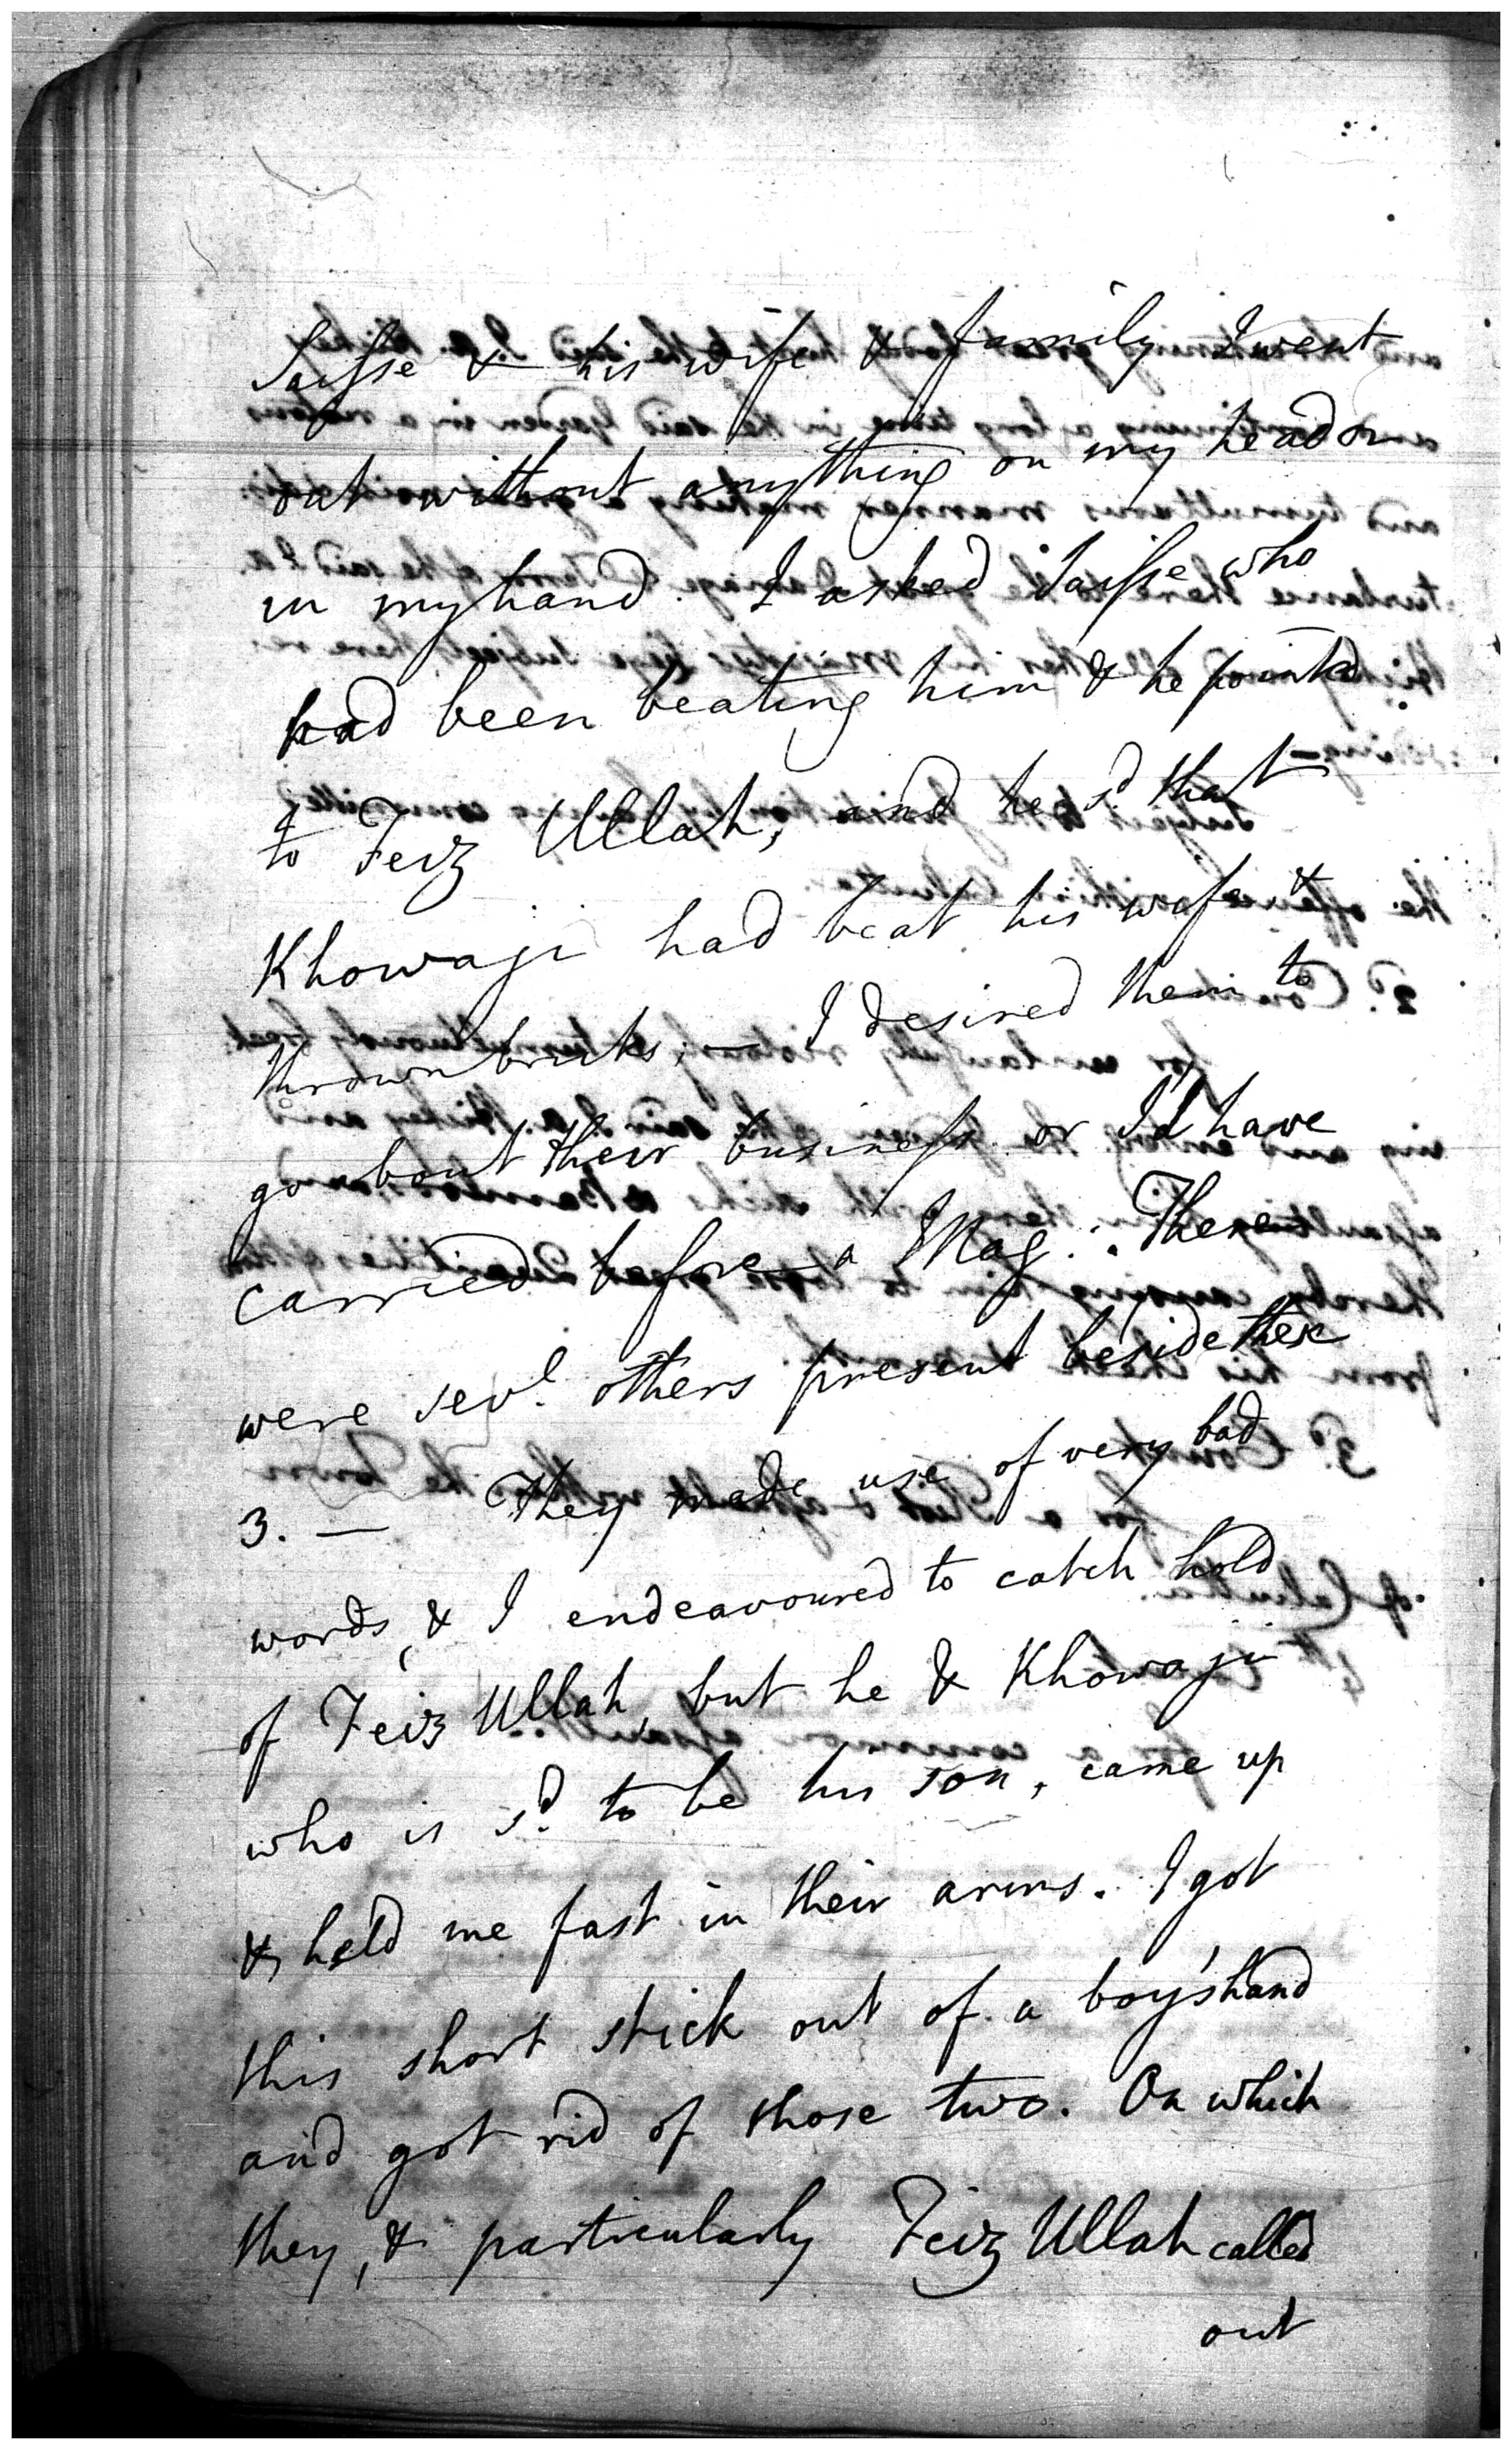 Saisse & his wife & family I went
out without anything on my head or
in my hand. I asked Saisse who
had been beating him & he pointed
to Feiz Ullah, and he sd. that
Khowaji had beat his wife &
thrown bricks; — I desired them to
go about their business or I'd have
carried before a Mag:. There
were sevl. others present beside these
3. — They made use of very bad
words, & I endeavoured to catch hold
of Feiz Ullah, but he & Khowaji
who is sd. to be his son, came up
& held me fast in their arms. I got
this short stick out of a boy's hand
and got rid of those two. On which
they, & particularly Feiz Ullah called
out